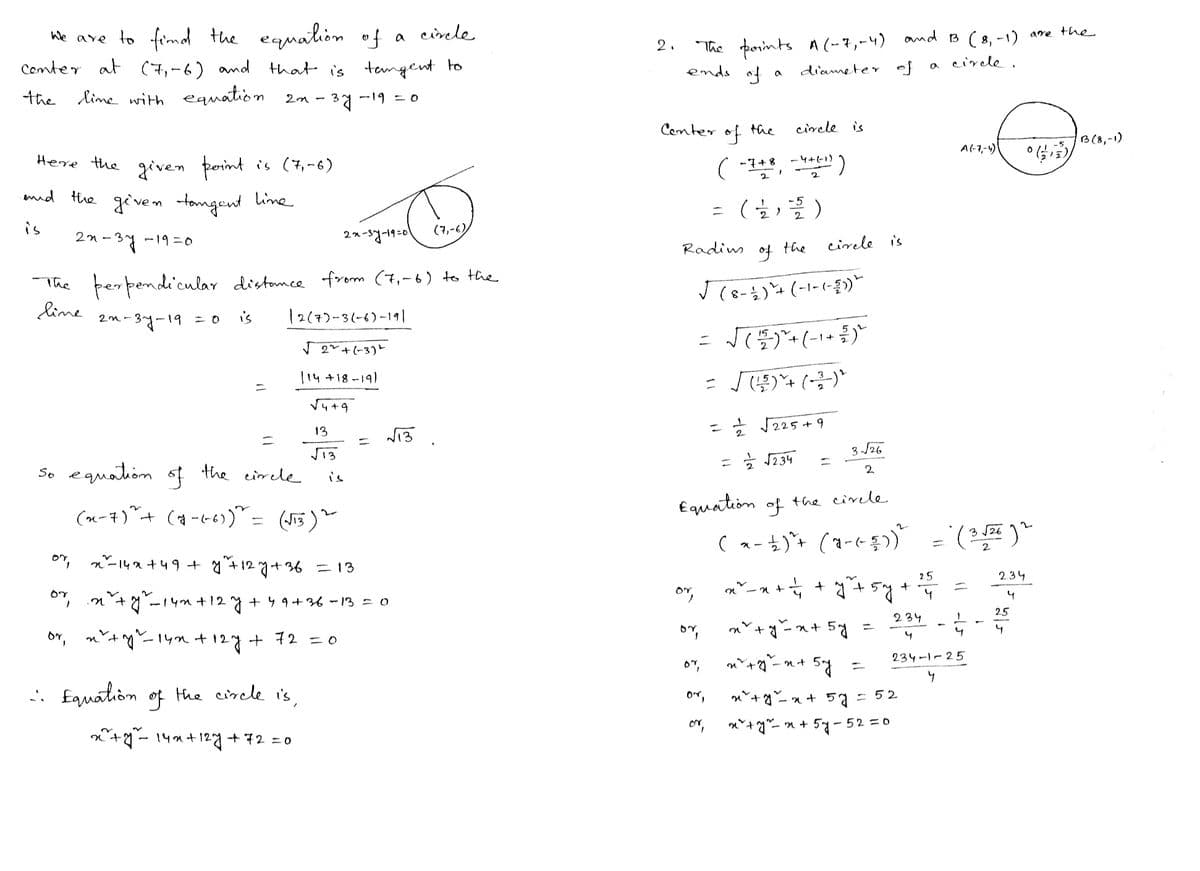 We are to find the equation of a circle
center at (7,-6) and that is tangent to
the line with equation 2x - 3y - 19 = 0
Here the given point is (7,-6)
and the given tangent line
is 2x - 3y - 19 = 0
2x-3y-19=0
(7,-6)
The perpendicular distance from (7,-6) to the
line 2x - 3y - 19 = 0 is |2(7)-3(-6)-19| / √(2²+(-3)²)
= |14+18-19| / √(4+9)
= 13/√13 = √13 .
So equation of the circle is
(x-7)² + (y-(-6))² = (√13)²
or, x²-14x+49 + y²+12y+36 = 13
or, x²+y²-14x+12y+49+36-13 = 0
or, x²+y²-14x+12y+72 = 0
∴ Equation of the circle is,
x²+y²-14x+12y+72 = 0
2. The points A(-7,-4) and B (8,-1) are the
ends of a diameter of a circle.
Center of the circle is
( (-7+8)/2, (-4+(-1))/2 )
= (1/2, -5/2)
A(-7,-4)
O(1/2, -5/2)
B(8,-1)
Radius of the circle is
√((8-1/2)²+(-1-(-5/2))²
= √((15/2)²+(-1+5/2)²
= √((15/2)²+(3/2)²
= 1/2 √(225+9)
= 1/2 √234 = 3√26/2
Equation of the circle
(x-1/2)²+(y-(-5/2))² = (3√26/2)²
or, x²-x+1/4+y²+5y+25/4 = 234/4
or, x²+y²-x+5y = 234/4 - 1/4 - 25/4
or, x²+y²-x+5y = (234-1-25)/4
or, x²+y²-x+5y = 52
or, x²+y²-x+5y-52 = 0